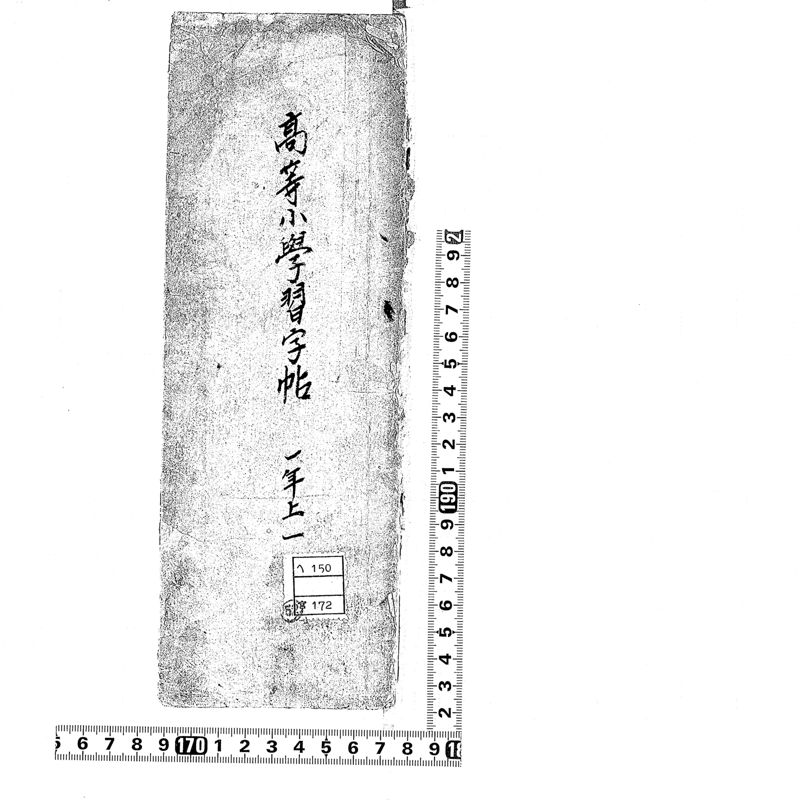 高等小學習字帖
一年上一
ヘ 150
172
2 9 8 7 6 5 4 3 2 1 190 9 8 7 6 5 4 3 2
5 6 7 8 9 170 1 2 3 4 5 6 7 8 9 18